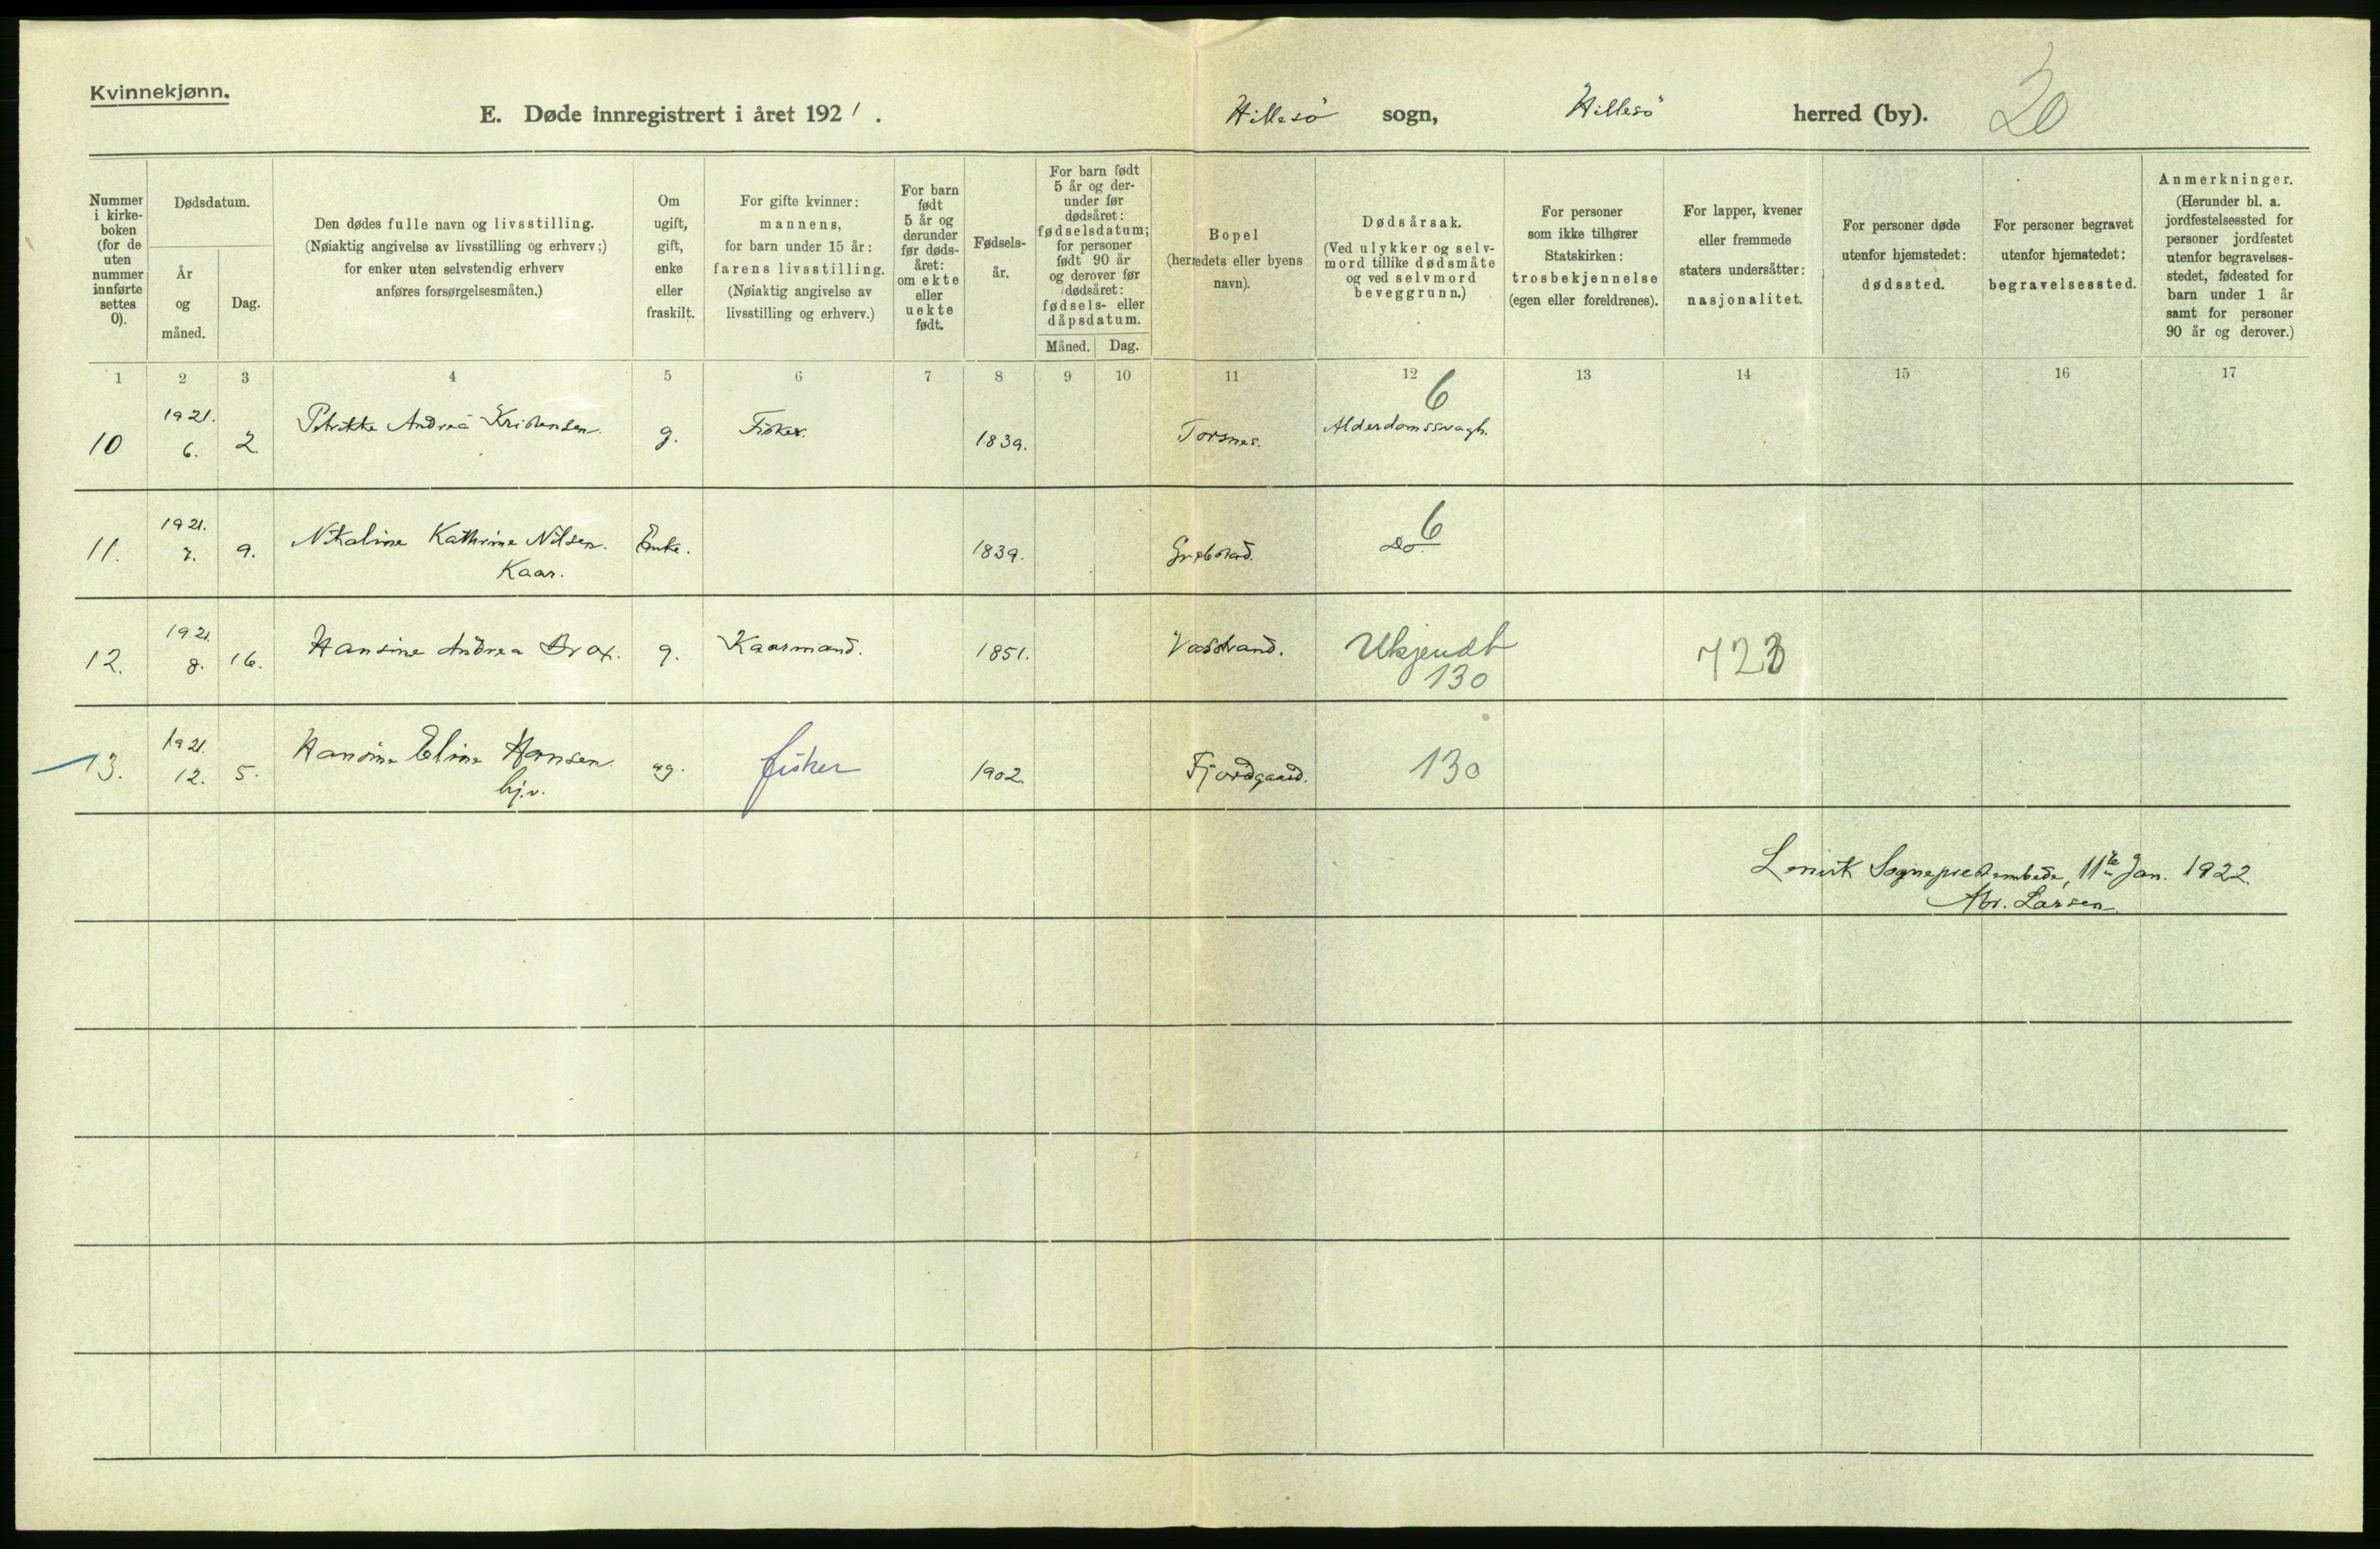 Kvinnekjønn.
E. Døde innregistrert i året 1921.
Hillesö sogn, Hillesö herred (by). 20
Nummer i kirke-boken (for de uten nummer innførte settes 0).
Dødsdatum.
År og måned.
Dag.
Den dødes fulle navn og livsstilling.
(Nøiaktig angivelse av livsstilling og erhverv;)
for enker uten selvstendig erhverv
anføres forsørgelsesmåten.)
Om ugift, gift, enke eller fraskilt.
For gifte kvinner:
mannens,
for barn under 15 år:
farens livsstilling.
(Nøiaktig angivelse av
livsstilling og erhverv.)
For barn født 5 år og derunder før døds-året: om ekte eller uekte født.
Fødsels-år.
For barn født 5 år og der-under før dødsåret: fødselsdatum; for personer født 90 år og derover før dødsåret: fødsels- eller dåpsdatum.
Måned. Dag.
Bopel
(herredets eller byens
navn).
Dødsårsak.
(Ved ulykker og selv-
mord tillike dødsmåte
og ved selvmord
beveggrunn.)
For personer
som ikke tilhører
Statskirken:
trosbekjennelse
(egen eller foreldrenes).
For lapper, kvener
eller fremmede
staters undersåtter:
nasjonalitet.
For personer døde
utenfor hjemstedet:
dødssted.
For personer begravet
utenfor hjemstedet:
begravelsessted.
Anmerkninger.
(Herunder bl. a.
jordfestelsessted for
personer jordfestet
utenfor begravelses-
stedet, fødested for
barn under 1 år
samt for personer
90 år og derover.)
1 2 3 4 5 6 7 8 9 10 11 12 13 14 15 16 17
10 1921. 6. 2 Petrikke Andrea Kristensen. g. Fisker. 1839. Torsnes. Alderdomssvagh. 6
11. 1921. 7. 9. Nikoline Kathrine Nilsen. Enke. 1839. Grebstad. Do. 6
Kaar.
12. 1921. 8. 16. Hansine Andrea Brox. g. Kaarmand. 1851. Vasstrand. Ukjendt 723
130
13. 1921. 12. 5. Hansine Eline Hansen ug. fisker 1902. Fjordgaard. 130
hj.v.
Lenvik Sogneprestembede, 11te Jan. 1922.
Abr. Larsen